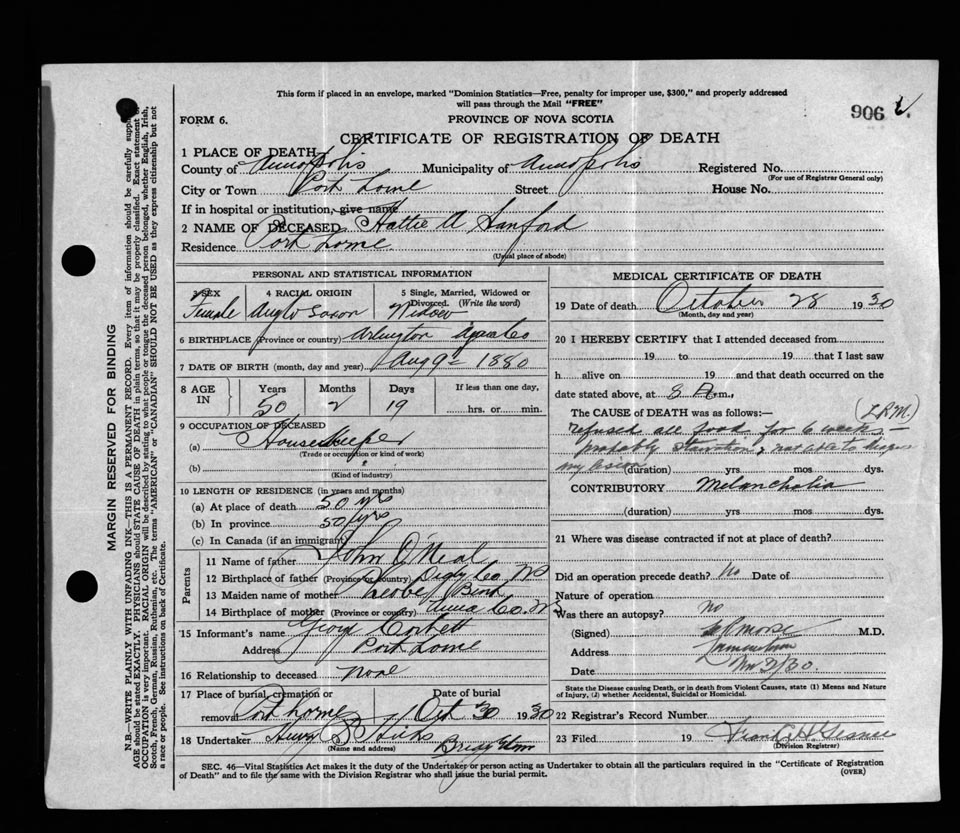 This form if placed in an envelope, marked "Dominion Statistics—Free, penalty for improper use, $300," and properly addressed
will pass through the Mail "FREE"
906
FORM 6.
PROVINCE OF NOVA SCOTIA
CERTIFICATE OF REGISTRATION OF DEATH
1 PLACE OF DEATH
County of Annapolis Municipality of Annapolis Registered No.
(For use of Registrar General only)
City or Town Port Lorne Street House No.
If in hospital or institution, give name
2 NAME OF DECEASED Hattie A Sanford
Residence Port Lorne
(Usual place of abode)
PERSONAL AND STATISTICAL INFORMATION
3 SEX 4 RACIAL ORIGIN 5 Single, Married, Widowed or Divorced. (Write the word)
Female Anglo Saxon Widow
6 BIRTHPLACE (Province or country) Arlington Co
7 DATE OF BIRTH (month, day and year) Aug 9th 1880
8 AGE IN Years Months Days If less than one day,
50 2 19 hrs. or min.
9 OCCUPATION OF DECEASED
(a) Housekeeper
(Trade or occupation or kind of work)
(b)
(Kind of industry)
10 LENGTH OF RESIDENCE (in years and months)
(a) At place of death 50 yrs
(b) In province 50 yrs
(c) In Canada (if an immigrant)
Parents
11 Name of father John O'Neal
12 Birthplace of father (Province or country) Digby Co. NS
13 Maiden name of mother Phebe
14 Birthplace of mother (Province or country) Anna Co. N.S
15 Informant's name George Corbett
Address Port Lorne
16 Relationship to deceased none
17 Place of burial, cremation or removal Port Lorne Date of burial Oct 30 1930
18 Undertaker Hicks
(Name and address) Bridgetown
MEDICAL CERTIFICATE OF DEATH
19 Date of death October 28 1930
(Month, day and year)
20 I HEREBY CERTIFY that I attended deceased from
19 to 19 that I last saw
h alive on 19 and that death occurred on the
date stated above, at 8 A.m.,
The CAUSE of DEATH was as follows:— (L.R.M.)
refused all food for 6 weeks –
probably Starvation,
my (duration) yrs. mos. dys.
CONTRIBUTORY Melancholia
(duration) yrs. mos. dys.
21 Where was disease contracted if not at place of death?
Did an operation precede death? No Date of
Nature of operation
Was there an autopsy? no
(Signed) L R Morse M.D.
Address Lawrencetown
Date
State the Disease causing Death, or in death from Violent Causes, state (1) Means and Nature
of Injury, (2) whether Accidental, Suicidal or Homicidal.
22 Registrar's Record Number
23 Filed 19 Frank H.
(Division Registrar)
SEC. 46—Vital Statistics Act makes it the duty of the Undertaker or person acting as Undertaker to obtain all the particulars required in the "Certificate of Registration
of Death" and to file the same with the Division Registrar who shall issue the burial permit.
(OVER)
MARGIN RESERVED FOR BINDING
N.B.—WRITE PLAINLY WITH UNFADING INK—THIS IS A PERMANENT RECORD. Every item of information should be carefully supplied.
AGE should be stated EXACTLY. PHYSICIANS should STATE CAUSE OF DEATH in plain terms, so that it may be properly classified. Exact statement of
OCCUPATION is very important. RACIAL ORIGIN will be described by stating to what people or tongue the deceased person belonged, whether English, Irish,
Scotch, French, German, Russian, Ruthenian, etc. The terms "AMERICAN" or "CANADIAN" SHOULD NOT BE USED as they express citizenship but not
a race or people. See instructions on back of Certificate.